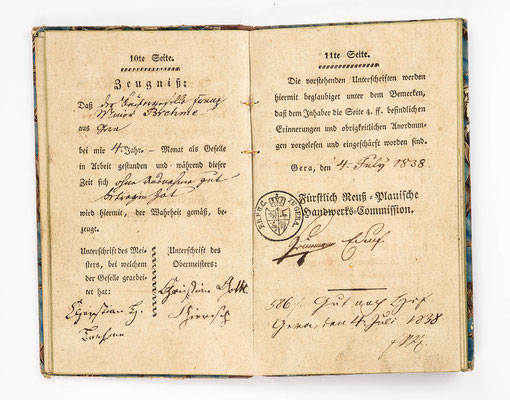 10te Seite.
Zeugniß:
Daß der
Brehme
aus Gera
bei mir 4 Jahr – Monat als Geselle
in Arbeit gestanden und während dieser
Zeit sich ohne Ausnahme gut
betragen hat
wird hiermit, der Wahrheit gemäß, be-
zeugt.
Unterschrift des Mei-
sters, bei welchem
der Geselle gearbei-
tet hat:
Unterschrift des
Obermeisters:
Christian
11te Seite.
Die vorstehenden Unterschriften werden
hiermit beglaubiget unter dem Bemerken,
daß dem Inhaber die Seite 4. ff. befindlichen
Erinnerungen und obrigkeitlichen Anordnun-
gen vorgelesen und eingeschärft worden sind.
Gera, den 4. July 1838.
Fürstlich Reuß-Plauische
Handwerks-Commission.
ZU GERA
586/. Gut nach
Gera, den 4. Juli 1838